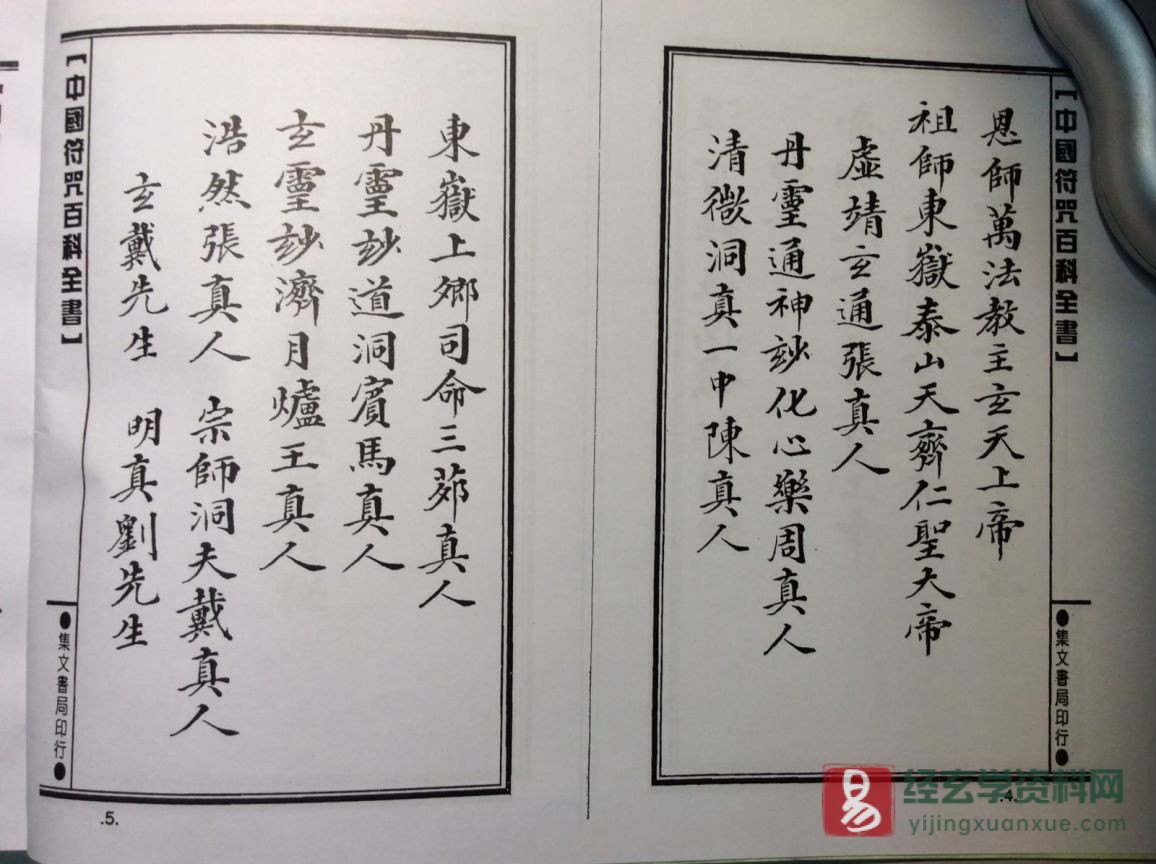 【中國符咒百科全書】
恩師萬法教主玄天上帝
祖師東嶽泰山天齊仁聖大帝
虛靖玄通張真人
丹靈通神玅化心樂周真人
清微洞真一中陳真人
●集文書局印行●
.4.
東嶽上卿司命三茆真人
丹靈玅道洞賓馬真人
玄靈玅濟月爐王真人
浩然張真人 宗師洞夫戴真人
玄戴先生 明真劉先生
【中國符咒百科全書】
●集文書局印行●
.5.
易
经玄学资料网
yijingxuanxue.com